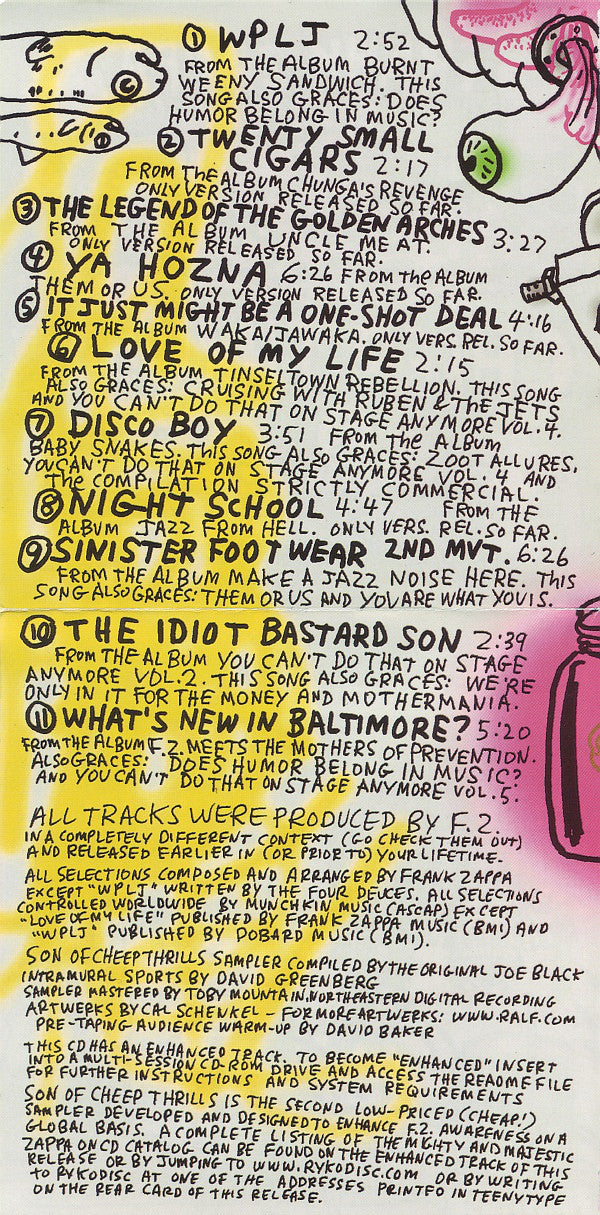 ① WPLJ 2:52
FROM THE ALBUM BURNT
WEENY SANDWICH. THIS
SONG ALSO GRACES: DOES
HUMOR BELONG IN MUSIC?
② TWENTY SMALL
CIGARS 2:17
FROM THE ALBUM CHUNGA'S REVENGE
ONLY VERSION RELEASED SO FAR.
③ THE LEGEND OF THE GOLDEN ARCHES 3:27
FROM THE ALBUM UNCLE MEAT.
ONLY VERSION RELEASED SO FAR.
④ YA HOZNA 6:26 FROM THE ALBUM
THEM OR US. ONLY VERSION RELEASED SO FAR.
⑤ IT JUST MIGHT BE A ONE-SHOT DEAL 4:16
FROM THE ALBUM WAKA/JAWAKA. ONLY VERS. REL. SO FAR.
⑥ LOVE OF MY LIFE 2:15
FROM THE ALBUM TINSELTOWN REBELLION. THIS SONG
ALSO GRACES: CRUISING WITH RUBEN & THE JETS
AND YOU CAN'T DO THAT ON STAGE ANYMORE VOL. 4.
⑦ DISCO BOY 3:51 FROM THE ALBUM
BABY SNAKES. THIS SONG ALSO GRACES: ZOOT ALLURES,
YOU CAN'T DO THAT ON STAGE ANYMORE VOL. 4 AND
THE COMPILATION STRICTLY COMMERCIAL.
⑧ NIGHT SCHOOL 4:47 FROM THE
ALBUM JAZZ FROM HELL. ONLY VERS. REL. SO FAR.
⑨ SINISTER FOOTWEAR 2ND MVT. 6:26
FROM THE ALBUM MAKE A JAZZ NOISE HERE. THIS
SONG ALSO GRACES: THEM OR US AND YOU ARE WHAT YOU IS.
⑩ THE IDIOT BASTARD SON 2:39
FROM THE ALBUM YOU CAN'T DO THAT ON STAGE
ANYMORE VOL. 2. THIS SONG ALSO GRACES: WE'RE
ONLY IN IT FOR THE MONEY AND MOTHERMANIA.
⑪ WHAT'S NEW IN BALTIMORE? 5:20
FROM THE ALBUM F.Z. MEETS THE MOTHERS OF PREVENTION.
ALSO GRACES: DOES HUMOR BELONG IN MUSIC?
AND YOU CAN'T DO THAT ON STAGE ANYMORE VOL. 5.
ALL TRACKS WERE PRODUCED BY F.Z.
IN A COMPLETELY DIFFERENT CONTEXT (GO CHECK THEM OUT)
AND RELEASED EARLIER IN (OR PRIOR TO) YOUR LIFETIME.
ALL SELECTIONS COMPOSED AND ARRANGED BY FRANK ZAPPA
EXCEPT "WPLJ" WRITTEN BY THE FOUR DEUCES. ALL SELECTIONS
CONTROLLED WORLDWIDE BY MUNCHKIN MUSIC (ASCAP) EXCEPT
"LOVE OF MY LIFE" PUBLISHED BY FRANK ZAPPA MUSIC (BMI) AND
"WPLJ" PUBLISHED BY DOBARD MUSIC (BMI).
SON OF CHEEP THRILLS SAMPLER COMPILED BY THE ORIGINAL JOE BLACK
INTRAMURAL SPORTS BY DAVID GREENBERG
SAMPLER MASTERED BY TOBY MOUNTAIN. NORTHEASTERN DIGITAL RECORDING
ARTWERKS BY CAL SCHENKEL - FOR MORE ARTWERKS: WWW.RALF.COM
PRE-TAPING AUDIENCE WARM-UP BY DAVID BAKER
THIS CD HAS AN ENHANCED TRACK. TO BECOME "ENHANCED" INSERT
INTO A MULTI-SESSION CD-ROM DRIVE AND ACCESS THE README FILE
FOR FURTHER INSTRUCTIONS AND SYSTEM REQUIREMENTS
SON OF CHEEP THRILLS IS THE SECOND LOW-PRICED (CHEAP!)
SAMPLER DEVELOPED AND DESIGNED TO ENHANCE F.Z. AWARENESS ON A
GLOBAL BASIS. A COMPLETE LISTING OF THE MIGHTY AND MAJESTIC
ZAPPA ON CD CATALOG CAN BE FOUND ON THE ENHANCED TRACK OF THIS
RELEASE OR BY JUMPING TO WWW.RYKODISC.COM OR BY WRITING
TO RYKODISC AT ONE OF THE ADDRESSES PRINTED IN TEENYTYPE
ON THE REAR CARD OF THIS RELEASE.